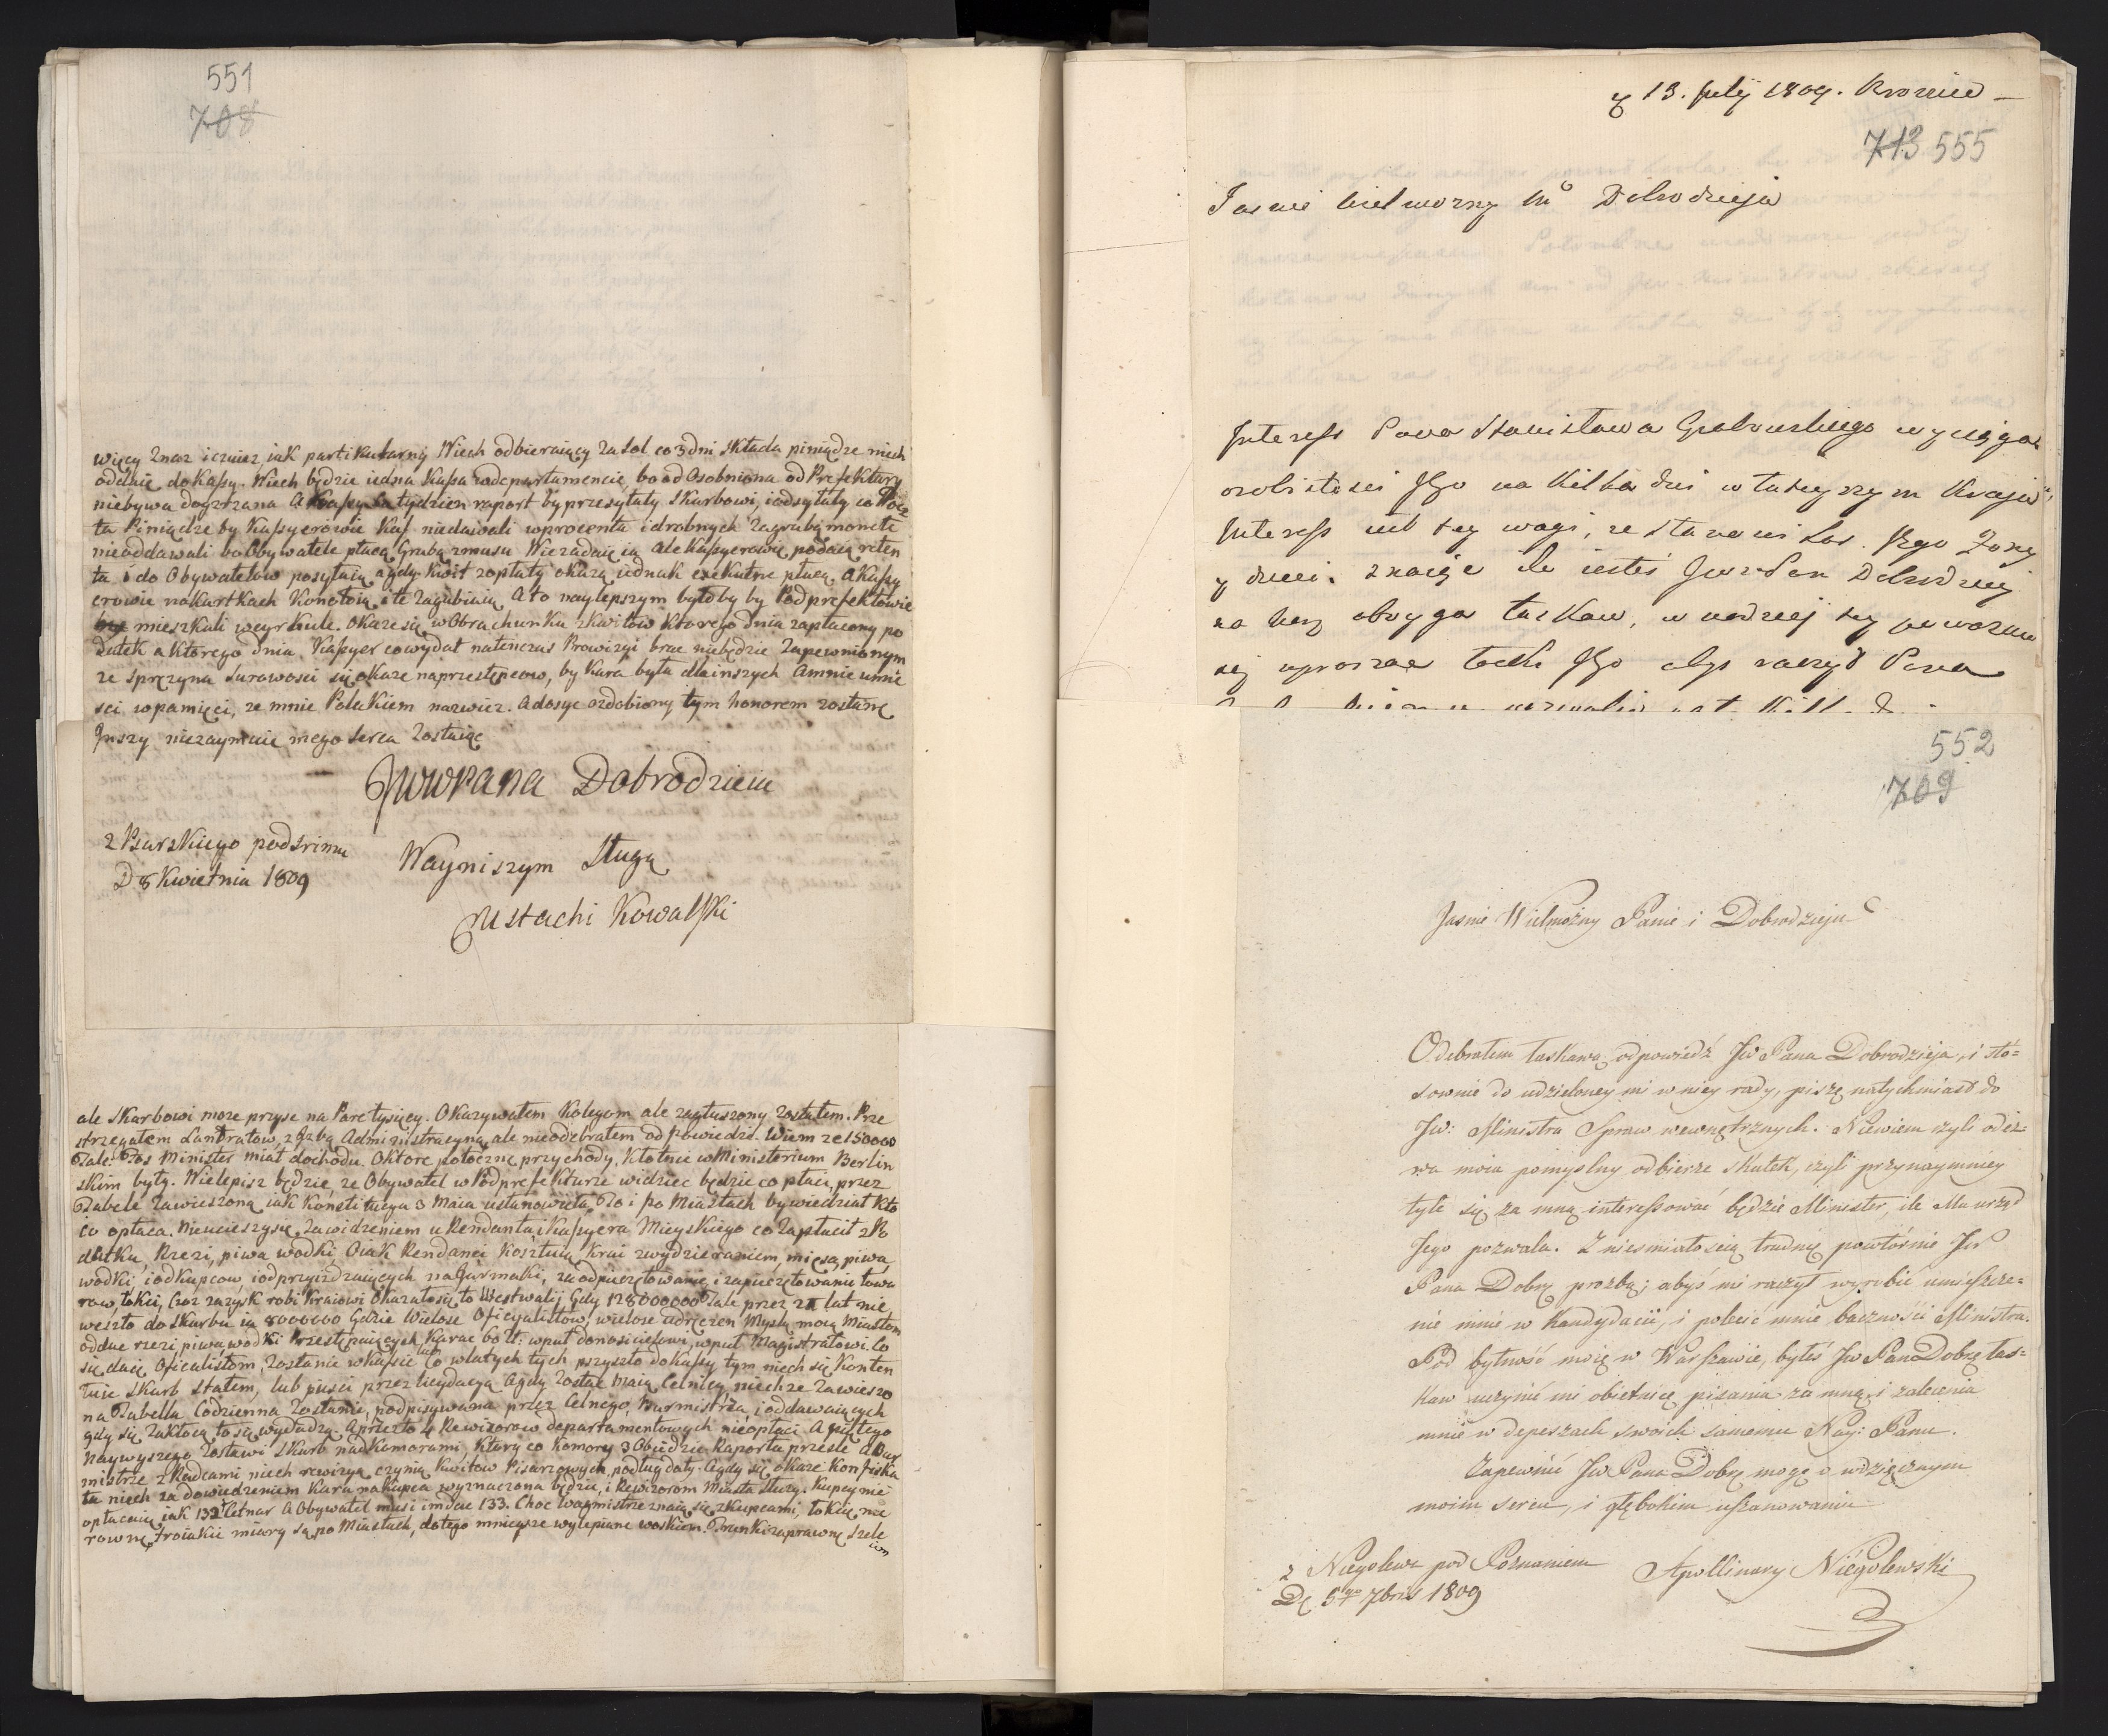 551
708
więcy znaz iczuiez, jak partikularny Niech odbieraiący Za Sol co 3 dni składa piniądze niech
oddaie do Kassy. Niech będzie iedna Kassa w departamencie, bo od Osobniona od Prefektury
niebywa dogrzana A Kassy Co tydzien raport by przesyłały Skarbowi, i odsyłały co
ta Piniądze by Kassyerowie Kas niedawali w procenta i drobnych Za grubą monete
nieoddawali bo Obywatele płacą Grubą zmusu Nie zadaią ią ale Kassyerowie podaią reten
ta i do Obywatelow posyłaią agdy Kwit zopłaty okażą iednak exekutne płacą. A Kassy
erowie na kartkach Konotuią i te Zagubiaią A to naylepszym byłoby by Podprefektowie
mieszkali w cyrkule. Okaze się w Obrachunku z kwitow ktorego dnia zapłacony po
datek a ktorego dnia Kassyer cowydał natenczas Prowizyi brac niebędzie Zapewnionym
ze sprężyna surowosci się okaze na przestępcow, by Kara była dla inszych A mnie umie
sci w pamięci, ze mnie Polakiem nazwiez. A dosyc ozdobiony tym honorem zostanę
Inszy niezaymuie mego serca Zostaiąc
JWWPana Dobrodzieia
z Psarskiego pod Srimu
D 8 Kwietnia 1809
Nayniszym Sługą
Eustachi Kowalski
ale Skarbowi moze przyse na Pare tysięcy. Okazywałem Kolegom ale zagłuszony Zostałem. Prze
strzegałem Lantratow, z Izbą Administracyną, ale nieodebrałem odpowiedzi. Wiem ze 150000
Tale: Tos Minister miał dochodu. Oktore potoczne przychody, Kłotnie w Ministerium Berlin
skim były. Nielepisz będzie, ze Obywatel w Podprefekturze widziec będzie co płaci, przez
Tabele Zawieszoną iak Konstitucya 3 Maia ustanowieła, To i po Miastach by wiedział kto
co opłaca. Nieucieszysię, Zawidzeniem u Rendanta i Kassyera Mieyskiego co Zapłacił z Po
datku, Rzezi, piwa wodki Oiak Rendanci Kosztuią Krai zwydzieraniem, mięsa, piwa,
wodki, i od Kupcow, i od przyiezdzaiących na Jarmaki, za odpieczętowanie, i zapieczętowanie towa
row, łokci, Coz zazysk robi Kraiowi Okazałosię to Westwalij Gdy 128000000 Tale przez 21 lat nie
weszło do Skarbu ią 8000000 Gdzie Wielosc Oficyalistow, wielosc udręczen Mysla moią Miastom
oddac rzezi, piwa, wodki Przestępuiących Karac bo tt: wpuł donosicielowi, wpuł Magistratowi. Co
się daię Oficalistom, Zostanie w Kassie Co w latych tych przyszło do Kassy tym niech się Konten
tuie Skarb Stałem, lub pusci przez licydacyą Agdy Zostac maią Celnicy, niechze Zawieszo
na Tabella Codzienna Zostanie, podpisywana przez Celnego, Burmistrza, i oddawaiących
gdy się Zakłocą to się wydadzą. Aprzezto 4 Rewizorow departamentowych nieopłaci A piątego
Naywyszego Zostawi Skarb nad Komorami, Ktory co Komory 3 Obiedzie Raporta przesle a Bur
mistrze z Radcami niech rewizya czynią Kwitow Pisarzowych, podług daty. Agdy się okaze Konfiska
ta niech za dowiedzeniem Kara na Kupca wyznaczona będzie, i Rewizorom Miasta służy. Kupcy nie
opłacaią iak 132 Cetnar A Obywatel musi im dac 133. Choc wagmistrze znaią się z Kupcami, łokcie nie
rowne, troiakie miary są po Miastach, do tego mnieysze wylepiane woskiem. Trunki zaprawne szele
iem
13. July 1809.
713 555
Jasnie Wielmozny Mo Dobrodzieja
Interess Pana Stanisława Grabowskiego wyciąga
osobistosci Jego na kilka dni w tuteyszym Kraju,
Interess iest tey wagi, ze stanowi los Jego Zony
y dzieci. znaiąc ile iestes Jw Pan Dobrodziey
łaskaw, w nadziei tey powazam
się upraszac Jego abys raczył Pana
552
709
Jasnie Wielmożny Panie i Dobrodzieju
Odebrałem łaskawą odpowiedź JW Pana Dobrodzieja, i sto=
sownie do udzieloney mi w niey rady, piszę natychmiast do
JW: Ministra Spraw wewnętrznych. Niewiem czyli odez=
wa moia pomyslny odbierze skutek, czyli przynaymniey
tyle się za mną interessować będzie Minister, ile Mu urząd
Jego pozwala. Z niesmiałością trudnię powtórnie JW
Pana Dobrę prozbą; abyś mi raczył wyrobić umieszcze=
nie mnie w Kandydacii, i polecić mnie baczności Ministra.
Pod bytność moię w Warszawie, byłeś JW Pan Dobrę łas=
kaw uczynić mi obietnicę pisania za mną, i zalecenia
mnie w depeszach swoich samemu Nay: Panu.
Zapewnić JW Pana Dobrę mogę o wdzięcznym
moim sercu, i głębokim uszanowaniu
z Niegolewa pod Poznaniem
D. 5go 7bris 1809
Apollinary Niégolewski